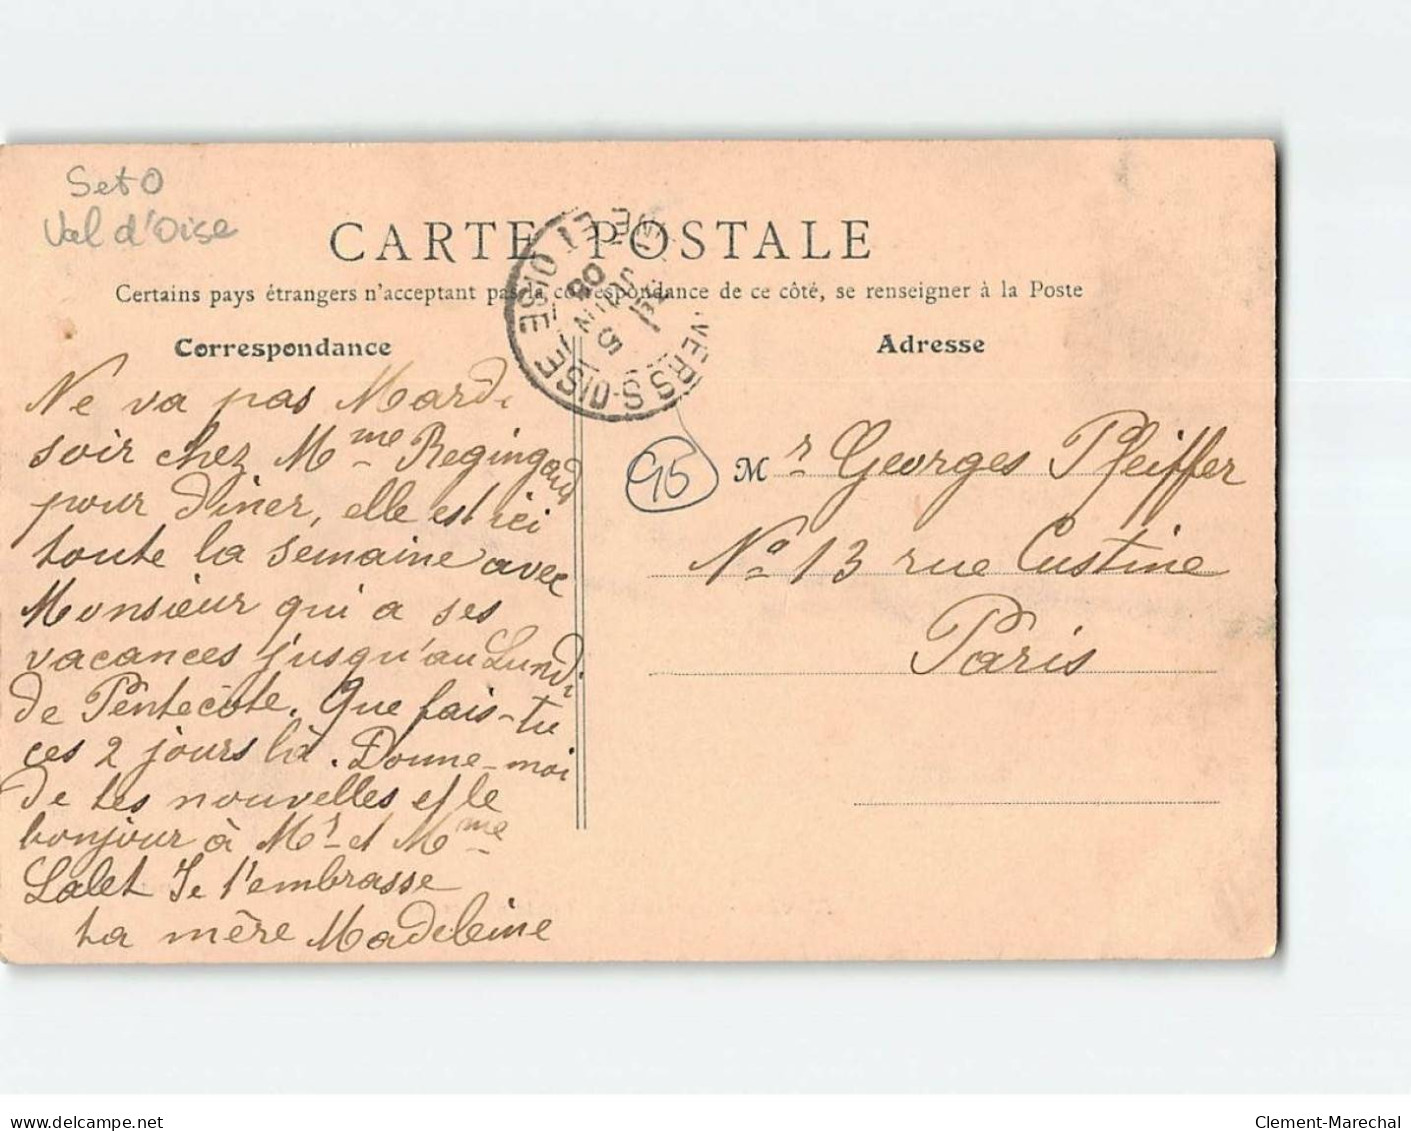 Set O
Val d'Oise
CARTE POSTALE
Certains pays étrangers n'acceptent pas la correspondance de ce côté, se renseigner à la Poste
Correspondance
Ne va pas Mardi
soir chez Mme Regingaud
pour diner, elle est ici
toute la semaine avec
Monsieur qui a ses
vacances jusqu'au Lundi
de Pentecôte. Que fais-tu
ces 2 jours là. Donne-moi
de tes nouvelles et le
bonjour à Mr et Mme
Lalet Je t'embrasse
ta mère Madeleine
OISE
5
JUIN
08
SEINE ET OISE
Adresse
95
Mr Georges Pfeiffer
No 13 rue Custine
Paris
delcampe.net
Clement-Marechal